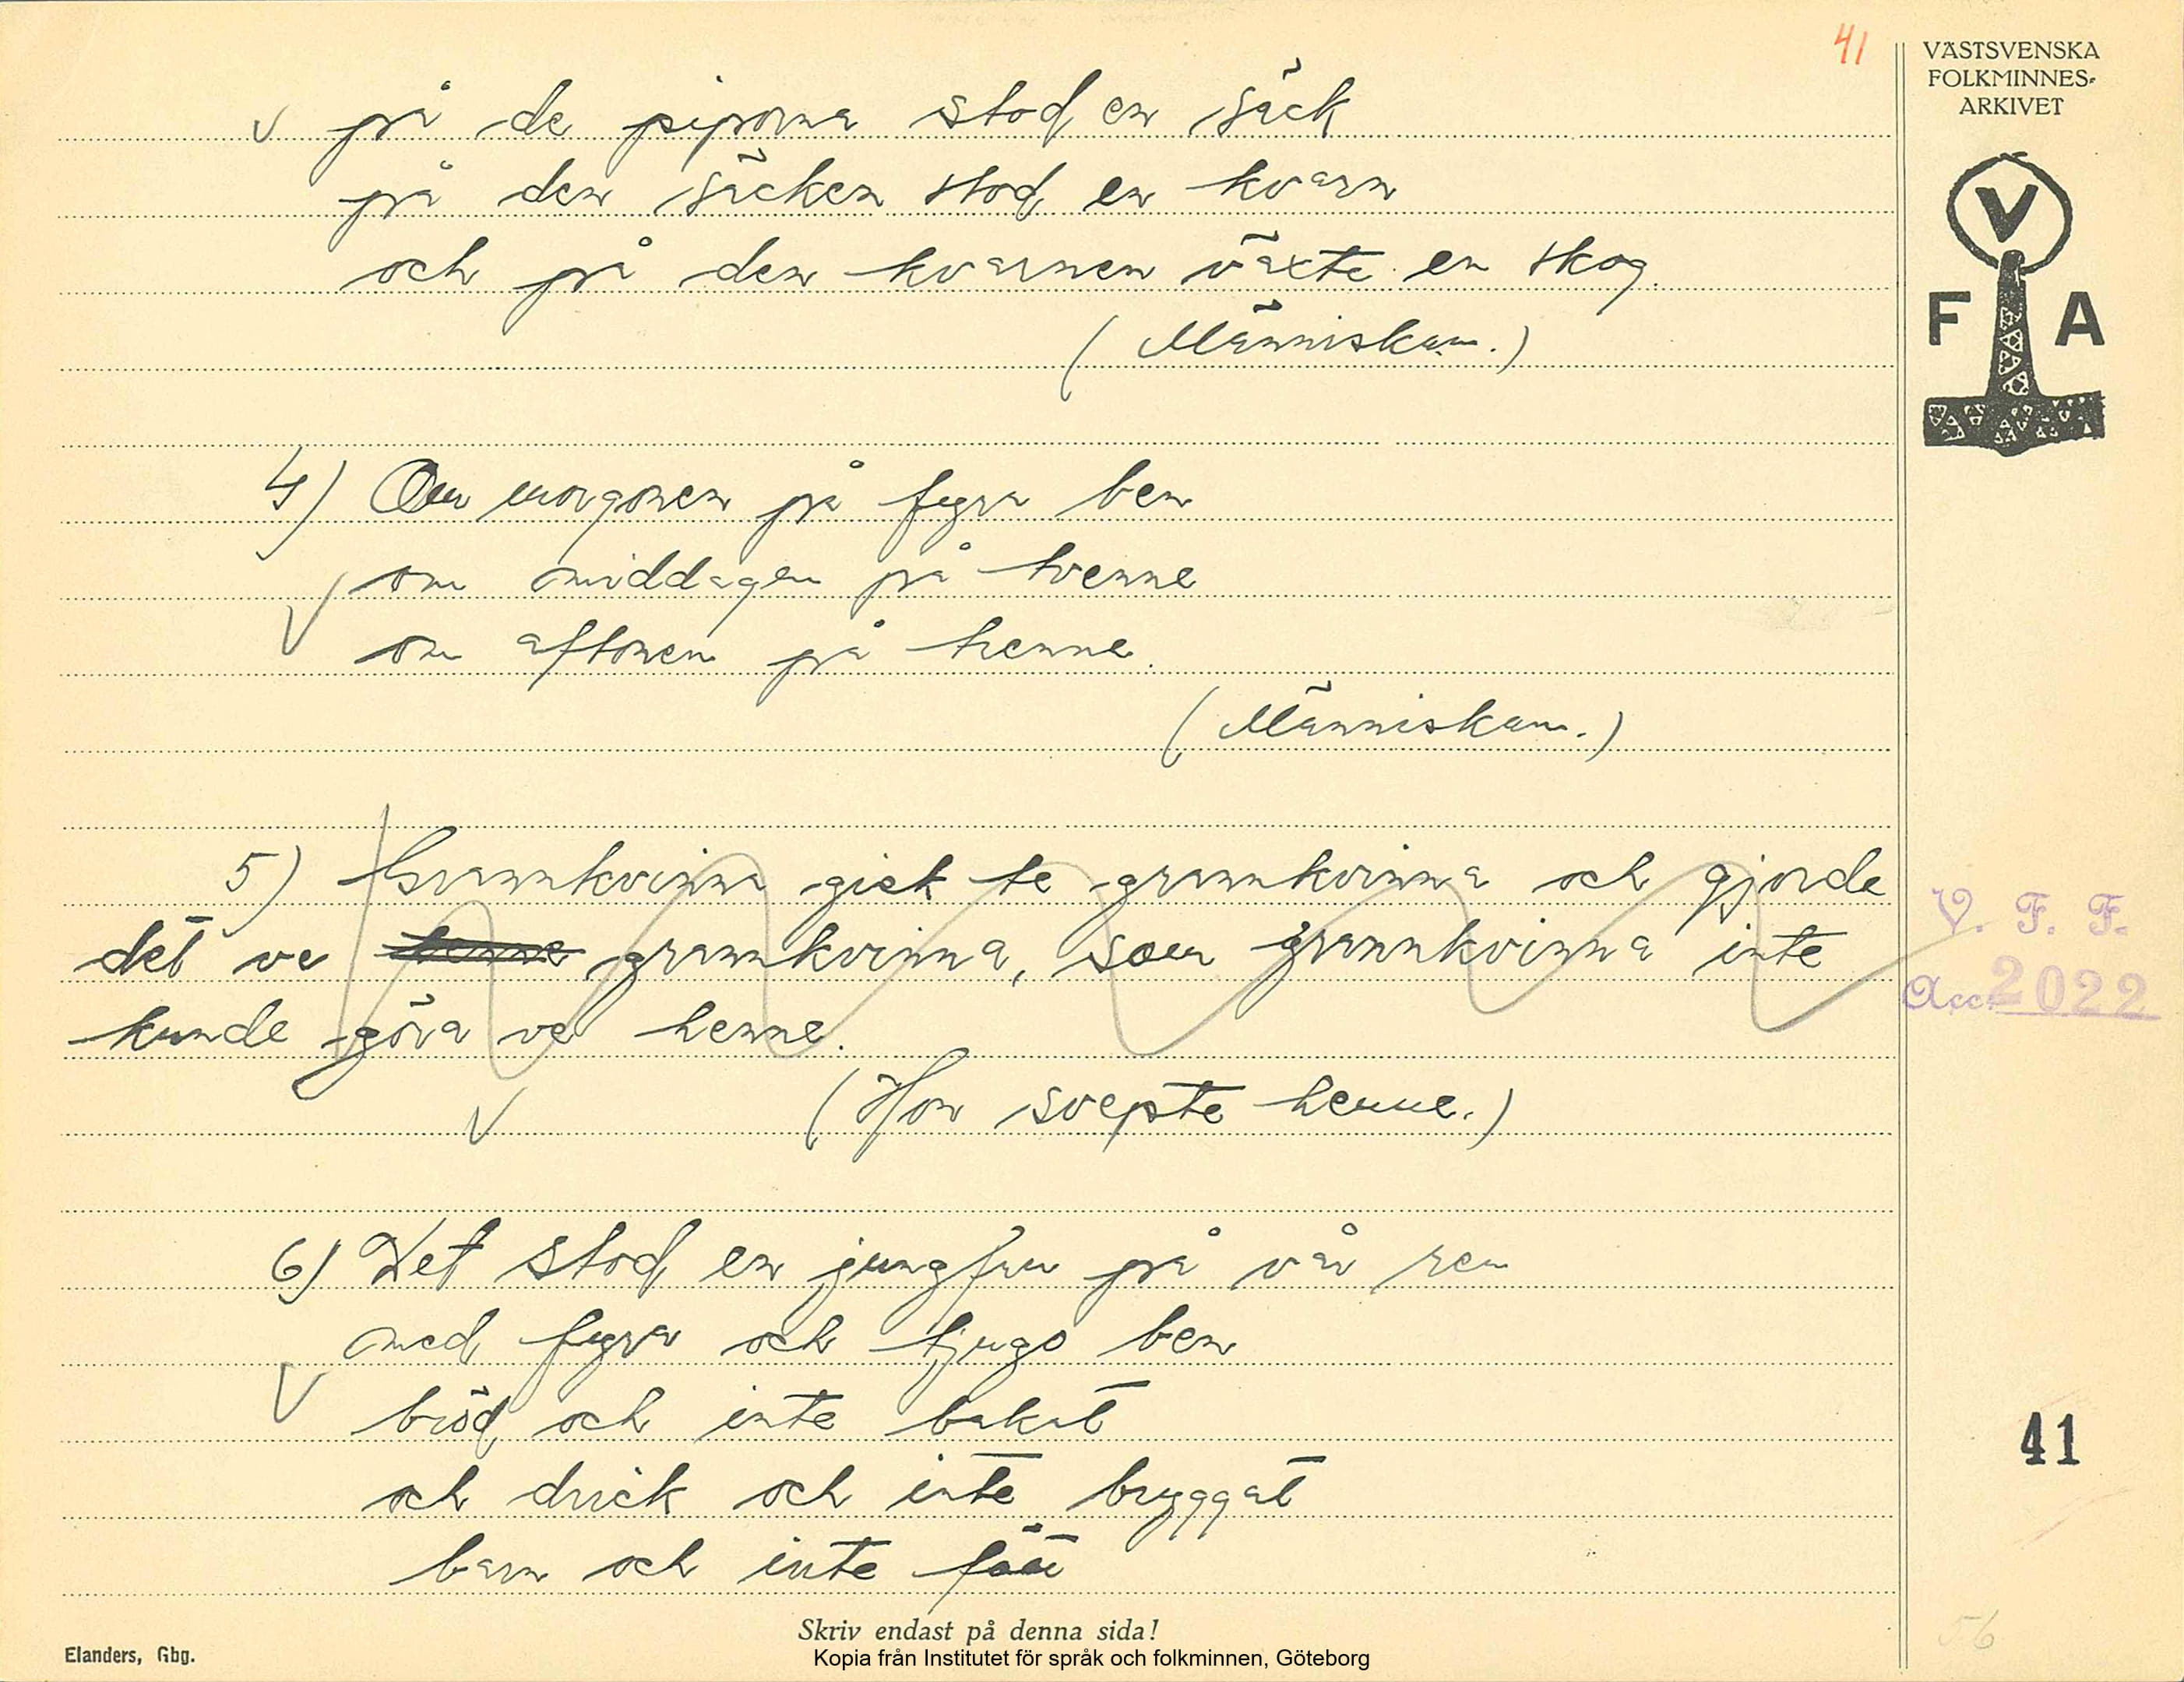 41
VÄSTSVENSKA
FOLKMINNES-
ARKIVET
V
F A
på de piporna stod en säck
på den säcken stod en kvarn
och på den kvarnen växte en skog.
(Människan.)
4) Om morgonen på fyra ben
om middagen på tvenne
om aftonen på trenne.
(Människan.)
5) Grannkvinna gick te grannkvinna och gjorde
det ve henne grannkvinna, som grannkvinna inte
kunde göra ve henne.
(Hon svepte henne.)
V. F. F.
Acc. 2022
6) Det stod en jungfru på vår ren
med fyra och tjugo ben
bröd och inte bakat
och drick och inte bryggat
barn och inte
41
56
Skriv endast på denna sida!
Elanders, Gbg.
Kopia från Institutet för språk och folkminnen, Göteborg